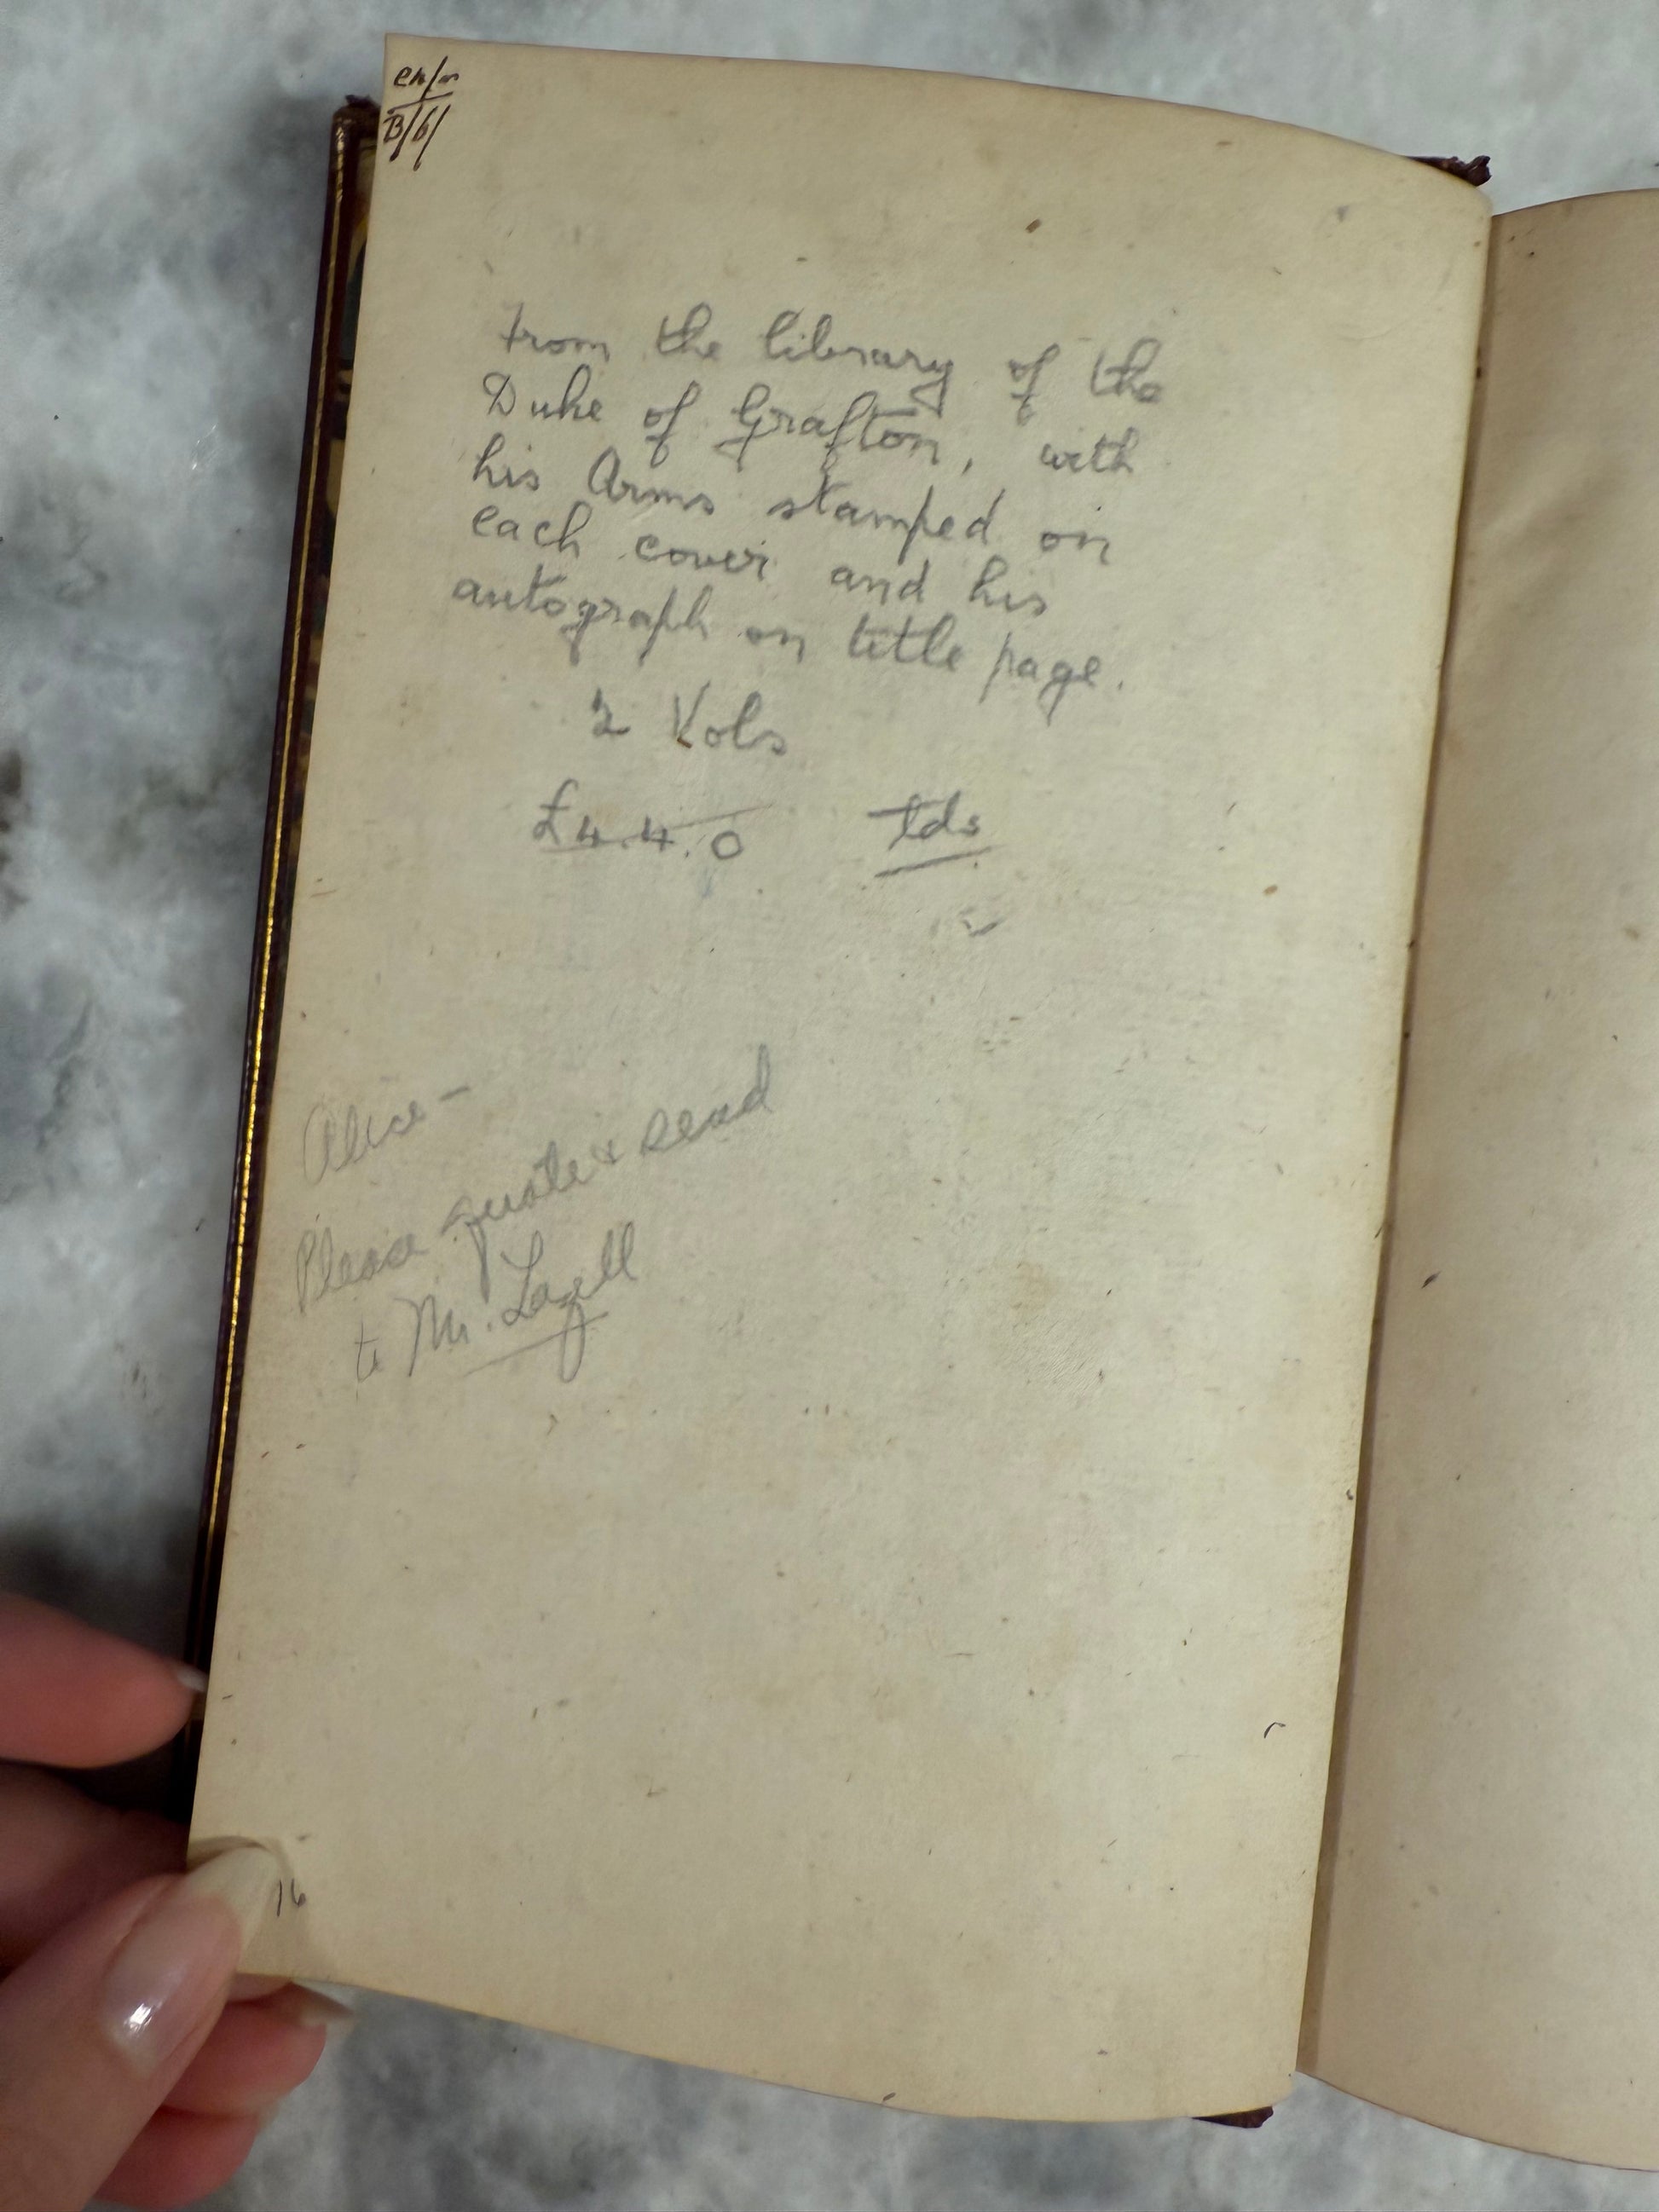 B/6/
From the library of the
Duke of Grafton, with
his Arms stamped on
each cover and his
autograph on title page.
2 Vols
£4.4.0 tds
Alice –
Please quote & send
to Mr. Lazell
16